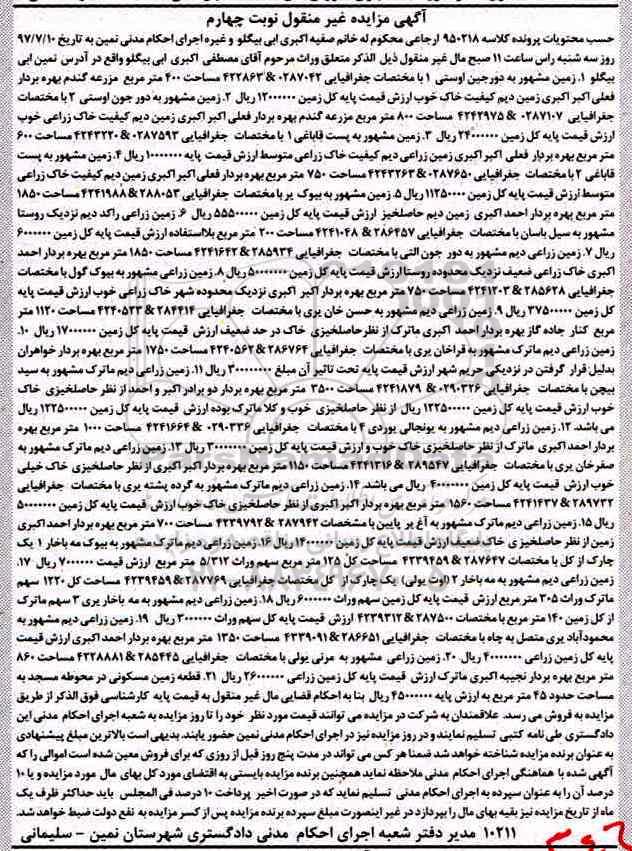 آگهی مزایده غیر منقول نوبت چهارم
حسب محتویات پرونده کلاسه ۹۵۰۲۱۸ ارجاعی محکوم له خانم صفیه اکبری ابی بیگلو و غیره اجرای احکام مدنی نمین به تاریخ ۹۷/۷/۱۰
روز سه شنبه راس ساعت ۱۱ صبح مال غیر منقول ذیل الذکر متعلق وراث مرحوم آقای مصطفی اکبری ابی بیگلو واقع در آدرس نمین ابی
بیگلو ۱. زمین مشهور به دورجین اوستی ۱ با مختصات جغرافیایی ۰۲۸۷۰۴۲ & ۴۲۲۸۶۳ مساحت ۴۰۰ متر مربع مزرعه گندم بهره بردار
فعلی اکبر اکبری زمین دیم کیفیت خاک خوب ارزش قیمت پایه کل زمین ۱۲۰۰۰۰۰۰ ریال ۲. زمین مشهور به دور جون اوستی ۲ با مختصات
جغرافیایی ۰۲۸۷۱۰۷ & ۴۲۴۲۹۷۵ مساحت ۸۰۰ متر مربع مزرعه گندم بهره بردار فعلی اکبر اکبری زمین دیم کیفیت خاک زراعی خوب
ارزش قیمت پایه کل زمین ۲۴۰۰۰۰۰۰ ریال ۳. زمین مشهور به پست قاباغی ۱ با مختصات جغرافیایی ۰۲۸۷۵۹۳ & ۴۲۴۳۲۲۰ مساحت ۶۰۰
متر مربع بهره بردار فعلی اکبر اکبری زمین زراعی دیم کیفیت خاک زراعی متوسط ارزش قیمت پایه ۱۰۰۰۰۰۰۰ ریال ۴. زمین مشهور به پست
قاباغی ۲ با مختصات جغرافیایی ۰۲۸۷۶۵۰ & ۴۲۴۳۲۶۳ مساحت ۷۵۰ متر مربع بهره بردار فعلی اکبر اکبری زمین دیم کیفیت خاک زراعی
متوسط ارزش قیمت پایه کل زمین ۱۱۲۵۰۰۰۰ ریال ۵. زمین مشهور به بیوک یر با مختصات جغرافیایی ۲۸۸۰۵۳ & ۴۲۴۱۹۸۸ مساحت ۱۸۵۰
متر مربع بهره بردار احمد اکبری زمین دیم حاصلخیز ارزش قیمت پایه کل زمین ۵۵۵۰۰۰۰۰ ریال ۶. زمین زراعی راکد دیم نزدیک روستا
مشهور به سیل باسان با مختصات جغرافیایی ۲۸۶۴۵۷ & ۴۲۴۱۰۴۸ مساحت ۲۰۰ متر مربع بلااستفاده ارزش قیمت پایه کل زمین ۶۰۰۰۰۰۰
ریال ۷. زمین زراعی دیم مشهور به دور جون التی با مختصات جغرافیایی ۲۸۵۹۳۴ & ۴۲۴۱۶۴۲ مساحت ۱۸۵۰ متر مربع بهره بردار احمد
اکبری خاک زراعی ضعیف نزدیک محدوده روستا ارزش قیمت پایه کل زمین ۵۰۰۰۰۰۰۰ ریال ۸. زمین زراعی مشهور به بیوک گول با مختصات
جغرافیایی ۲۸۵۶۲۸ & ۴۲۴۱۲۰۳ مساحت ۷۵۰ متر مربع بهره بردار اکبر اکبری نزدیک محدوده شهر خاک زراعی خوب ارزش قیمت پایه
کل زمین ۳۷۵۰۰۰۰۰ ریال ۹. زمین زراعی دیم مشهور به حسن خان یری با مختصات جغرافیایی ۲۸۴۴۱۴ & ۴۲۴۰۵۳۳ مساحت ۱۱۲۰ متر
مربع کنار جاده گاز بهره بردار احمد اکبری ماترک از نظر حاصلخیزی خاک در حد ضعیف ارزش قیمت پایه کل زمین ۱۷۰۰۰۰۰۰ ریال ۱۰.
زمین زراعی دیم ماترک مشهور به قراخان یری با مختصات جغرافیایی ۲۸۶۷۶۴ & ۴۲۴۰۵۶۲ مساحت ۱۷۵۰ متر مربع بهره بردار خواهران
بدلیل قرار گرفتن در نزدیکی حریم شهر ارزش قیمت پایه تحت تاثیر آن مبلغ ۳۰۰۰۰۰۰۰ ریال ۱۱. زمین زراعی دیم ماترک مشهور به سید
بیچن با مختصات جغرافیایی ۰۲۹۰۳۲۶ & ۴۲۴۱۸۷۹ مساحت ۳۵۰۰ متر مربع بهره بردار دو برادر اکبر و احمد از نظر حاصلخیزی خاک
خوب ارزش قیمت پایه کل زمین ۱۲۲۵۰۰۰۰۰ ریال از نظر حاصلخیزی خوب و کلا ماترک بوده ارزش قیمت پایه کل زمین ۱۲۲۵۰۰۰۰۰ ریال
می باشد. ۱۲. زمین زراعی دیم مشهور به یونجالی یوردی ۴ با مختصات جغرافیایی ۰۲۹۰۳۳۶ & ۴۲۴۱۶۶۴ مساحت ۱۰۰۰ متر مربع بهره
بردار احمد اکبری ماترک از نظر حاصلخیزی خاک خوب و ارزش قیمت پایه کل زمین ۳۰۰۰۰۰۰۰ ریال ۱۳. زمین زراعی دیم ماترک مشهور به
صفرخان یری با مختصات جغرافیایی ۲۸۹۵۴۷ & ۴۲۴۱۳۱۶ مساحت ۱۱۵۰ متر مربع بهره بردار اکبر اکبری از نظر حاصلخیزی خاک خیلی
خوب ارزش قیمت پایه کل زمین ۴۰۰۰۰۰۰۰ ریال می باشد. ۱۴. زمین زراعی دیم ماترک مشهور به گرده پشته یری با مختصات جغرافیایی
۲۸۹۷۳۲ & ۴۲۴۱۴۳۷ مساحت ۱۵۶۰ متر مربع بهره بردار اکبر اکبری از نظر حاصلخیزی خاک خوب ارزش قیمت پایه کل زمین ۵۰۰۰۰۰۰۰
ریال ۱۵. زمین زراعی دیم ماترک مشهور به آغ بر پایین با مشخصات ۲۸۷۹۴۲ & ۴۲۳۹۷۹۲ مساحت ۷۰۰ متر مربع بهره بردار احمد اکبری
زمین از نظر حاصلخیزی خاک ضعیف ارزش قیمت پایه کل زمین ۱۴۰۰۰۰۰۰ ریال ۱۶. زمین زراعی دیم ماترک مشهور به بیوک مه باخار ۱ یک
چارک از کل با مختصات ۲۸۷۶۴۷ & ۴۲۳۹۴۵۹ مساحت کل ۱۲۵ متر مربع سهم وراث ۵/۳۱۲ متر مربع ارزش قیمت ۷۰۰۰۰۰۰ ریال ۱۷.
زمین زراعی دیم مشهور به مه باخار ۲ (اوت یولی) یک چارک از کل مختصات جغرافیایی ۲۸۷۷۶۹ & ۴۲۳۹۴۵۹ مساحت کل ۱۲۲۰ سهم
ماترک وراث ۳۰۵ متر مربع ارزش قیمت پایه کل زمین سهم وراث ۶۰۰۰۰۰۰ ریال ۱۸. زمین زراعی دیم مشهور به مه باخار یری ۳ سهم ماترک
از کل زمین ۱۴۰ متر مربع با مختصات ۲۸۷۵۰۰ & ۴۲۳۹۳۱۲ ارزش قیمت پایه کل سهم وراث ۳۰۰۰۰۰۰ ریال ۱۹. زمین زراعی دیم مشهور به
محمودآباد یری متصل به چاه با مختصات جغرافیایی ۲۸۶۶۵۱ & ۴۳۳۹۰۹۱ مساحت ۱۳۵۰ متر مربع بهره بردار احمد اکبری ارزش قیمت
پایه کل زمین زراعی ۴۰۰۰۰۰۰۰ ریال ۲۰. زمین زراعی مشهور به مرنی یولی با مختصات جغرافیایی ۲۸۵۴۴۵ & ۴۲۲۸۸۸۱ مساحت ۸۶۰
متر مربع بهره بردار نجیبه اکبری ماترک ارزش قیمت پایه زمین زراعی ۲۶۰۰۰۰۰۰ ریال ۲۱. قطعه زمین مسکونی در محوطه مسجد به
مساحت حدود ۴۵ متر مربع به ارزش پایه ۴۵۰۰۰۰۰۰ ریال بنا به احکام قضایی مال غیر منقول به قیمت پایه کارشناسی فوق الذکر از طریق
مزایده به فروش می رسد. علاقمندان به شرکت در مزایده می توانند قیمت مورد نظر خود را تا روز مزایده به شعبه اجرای احکام مدنی این
دادگستری طی نامه کتبی تسلیم نمایند و در روز مزایده نیز در اجرای احکام مدنی نمین حضور یابند. بدیهی است بالاترین مبلغ پیشنهادی
به عنوان برنده مزایده شناخته خواهد شد ضمنا هر کس می تواند در مدت پنج روز قبل از روزی که برای فروش معین شده است اموالی را که
آگهی شده با هماهنگی اجرای احکام مدنی ملاحظه نماید همچنین برنده مزایده بایستی به اقتضای مورد کل بهای مال مورد مزایده و یا ۱۰
درصد آن را به عنوان سپرده به اجرای احکام مدنی تسلیم نماید که در صورت اخیر پرداخت ۱۰ درصد فی المجلس باید حداکثر ظرف یک
ماه از تاریخ مزایده نیز بقیه بهای مال را بپردازد در غیر اینصورت مبلغ سپرده برنده مزایده پس از کسر مزایده به نفع دولت ضبط خواهد شد.
۱۰۲۱۱ مدیر دفتر شعبه اجرای احکام مدنی دادگستری شهرستان نمین - سلیمانی